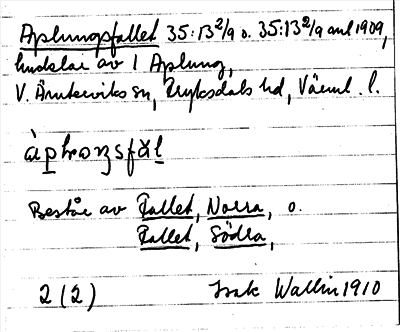 Aplungsfallet 35:13²/9 o. 35:13²/9 anl 1909,
lindelar av 1 Aplung,
V. Ämterviks sn, Fryksdals hd, Värml. l.
Består av Fallet, Norra, o.
Fallet, Södra,
2(2) Isak Wallin 1910